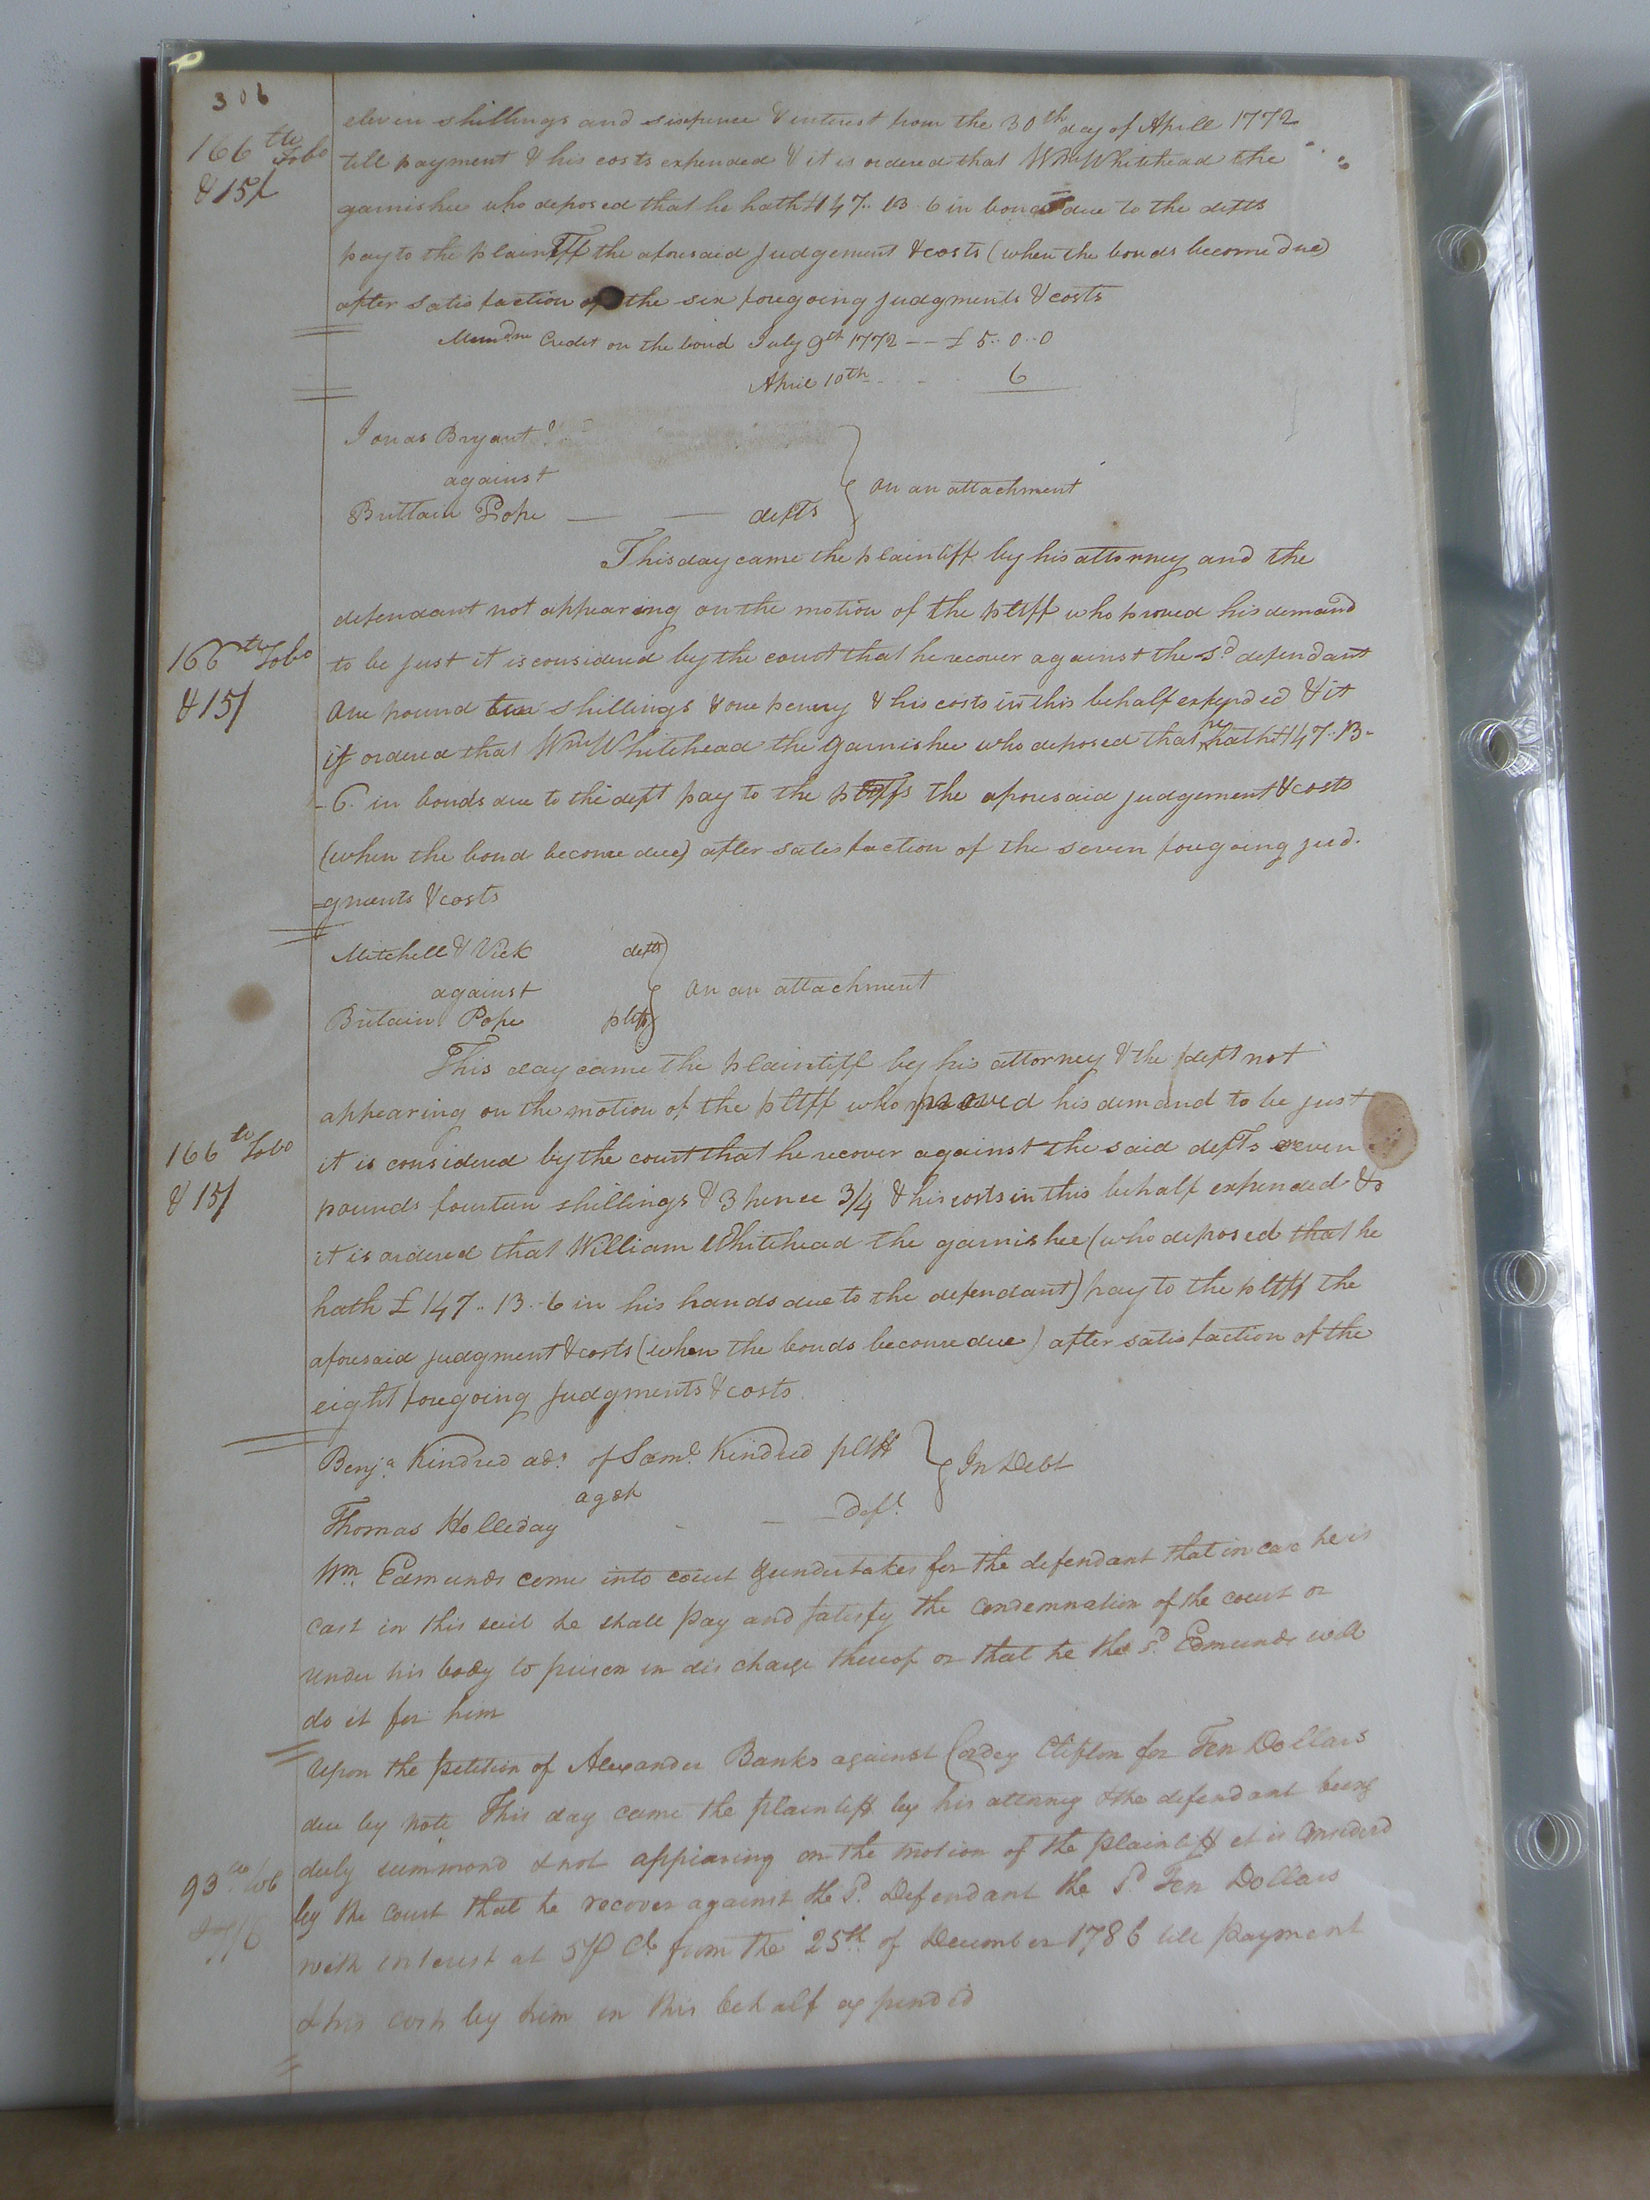 306
eleven shillings and sixpence & interest from the 30th day of Aprill 1772
166 tts Tobo
till payment & his costs expended & it is ordered that Wm Whitehead the
& 15/
garnishee who deposed that he hath £147..13..6 in bonds due to the defts
pay to the plaintiff the aforesaid judgement & costs (when the bonds become due)
after satisfaction of the six foregoing judgments & costs
Memdm Credit on the bond July 9th 1772 -- £ 5..0..0
April 10th 6
Jonas Bryant
against
Brittain Pope defts
on an attachment
This day came the plaintiff by his attorney and the
defendant not appearing on the motion of the pltff who proved his demand
166 tts Tobo
to be just it is considered by the court that he recover against the sd defendant
& 15/
One pound ten shillings & one penny & his costs in this behalf expended & it
is ordered that Wm Whitehead the garnishee who deposed that he hath £147..13-
-6. in bonds due to the deft pay to the pltffs the aforesaid judgement & costs
(when the bond become due) after satisfaction of the seven foregoing jud-
=gments & costs
Mitchell & Vick defts
against
Britain Pope pltfs
on an attachment
This day came the plaintiff by his attorney & the deft not
appearing on the motion of the pltff who proved his demand to be just
166 tts Tobo
it is considered by the court that he recover against the said defts seven
& 15/
pounds fourteen shillings & 3 pence 3/4 & his costs in this behalf expended &
it is ordered that William Whitehead the garnishee (who deposed that he
hath £147..13..6 in his hands due to the defendant) pay to the pltff the
aforesaid judgment & costs (when the bonds become due) after satisfaction of the
eight foregoing judgments & costs
Benja Kindred adr. of Saml. Kindred pltff
agst
Thomas Holleday Deft.
In Debt
Wm. Edmunds comes into court & undertakes for the defendant that in case he is
cast in this suit he shall pay and satisfy the condemnation of the court or
render his body to prison in discharge thereof or that he the sd. Edmunds will
do it for him
Upon the petition of Alexander Banks against Cordey Clifton for Ten Dollars
due by note This day came the plaintiff by his attorney & the defendant being
duly summond & not appearing on the motion of the plaintiff it is Considerd
93
by the court that he recover against the sd. Defendant the sd. Ten Dollars
with interest at 5 P Ct. from the 25th of December 1786 till payment
& his costs by him in this behalf expended